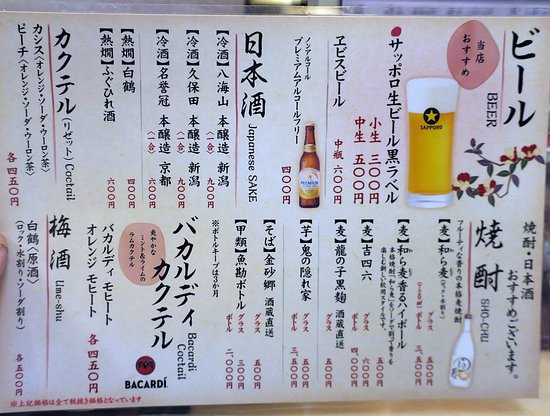 ビール
BEER
当店
おすすめ
サッポロ生ビール黒ラベル
小生 三〇〇円
中生 五五〇円
ヱビスビール
中瓶 六〇〇円
ノンアルコール
プレミアムアルコールフリー
四〇〇円
SAPPORO
日本酒
Japanese SAKE
【冷酒】八海山 本醸造 新潟
(一合) 九〇〇円
【冷酒】久保田 本醸造 新潟
(一合) 九〇〇円
【冷酒】名誉冠 本醸造 京都
(一合) 七〇〇円
【熱燗】白鶴
四〇〇円
【熱燗】ふぐひれ酒
六〇〇円
カクテル
(リゼット) Coctail
カシス(オレンジ・ソーダ・ウーロン茶)
ピーチ(オレンジ・ソーダ・ウーロン茶)
各四五〇円
焼酎・日本酒
おすすめございます。
焼酎
SHO-CHU
フルーティな香りの本格麦焼酎
【麦】和ら麦
グラス 五〇〇円
【麦】和ら麦香るハイボール
五〇〇円
【麦】吉四六
グラス 六〇〇円
ボトル 四、五〇〇円
【麦】龍の子黒麹 酒蔵直送
グラス 五〇〇円
【芋】鬼の隠れ家
グラス 五〇〇円
ボトル 三、五〇〇円
【そば】金砂郷 酒蔵直送
グラス 五〇〇円
【甲類】魚勘ボトル
グラス 三五〇円
ボトル 二、〇〇〇円
※ボトルキープは3か月
バカルディ
カクテル
Bacardi
Coctail
爽やかな
ミント&ライムの
ラムカクテル
バカルディ モヒート
オレンジ モヒート
各四五〇円
BACARDÍ
梅酒
Ume-shu
白鶴〈原酒〉
(ロック・水割り・ソーダ割り)
各五〇〇円
※上記価格は全て税抜き価格となっています